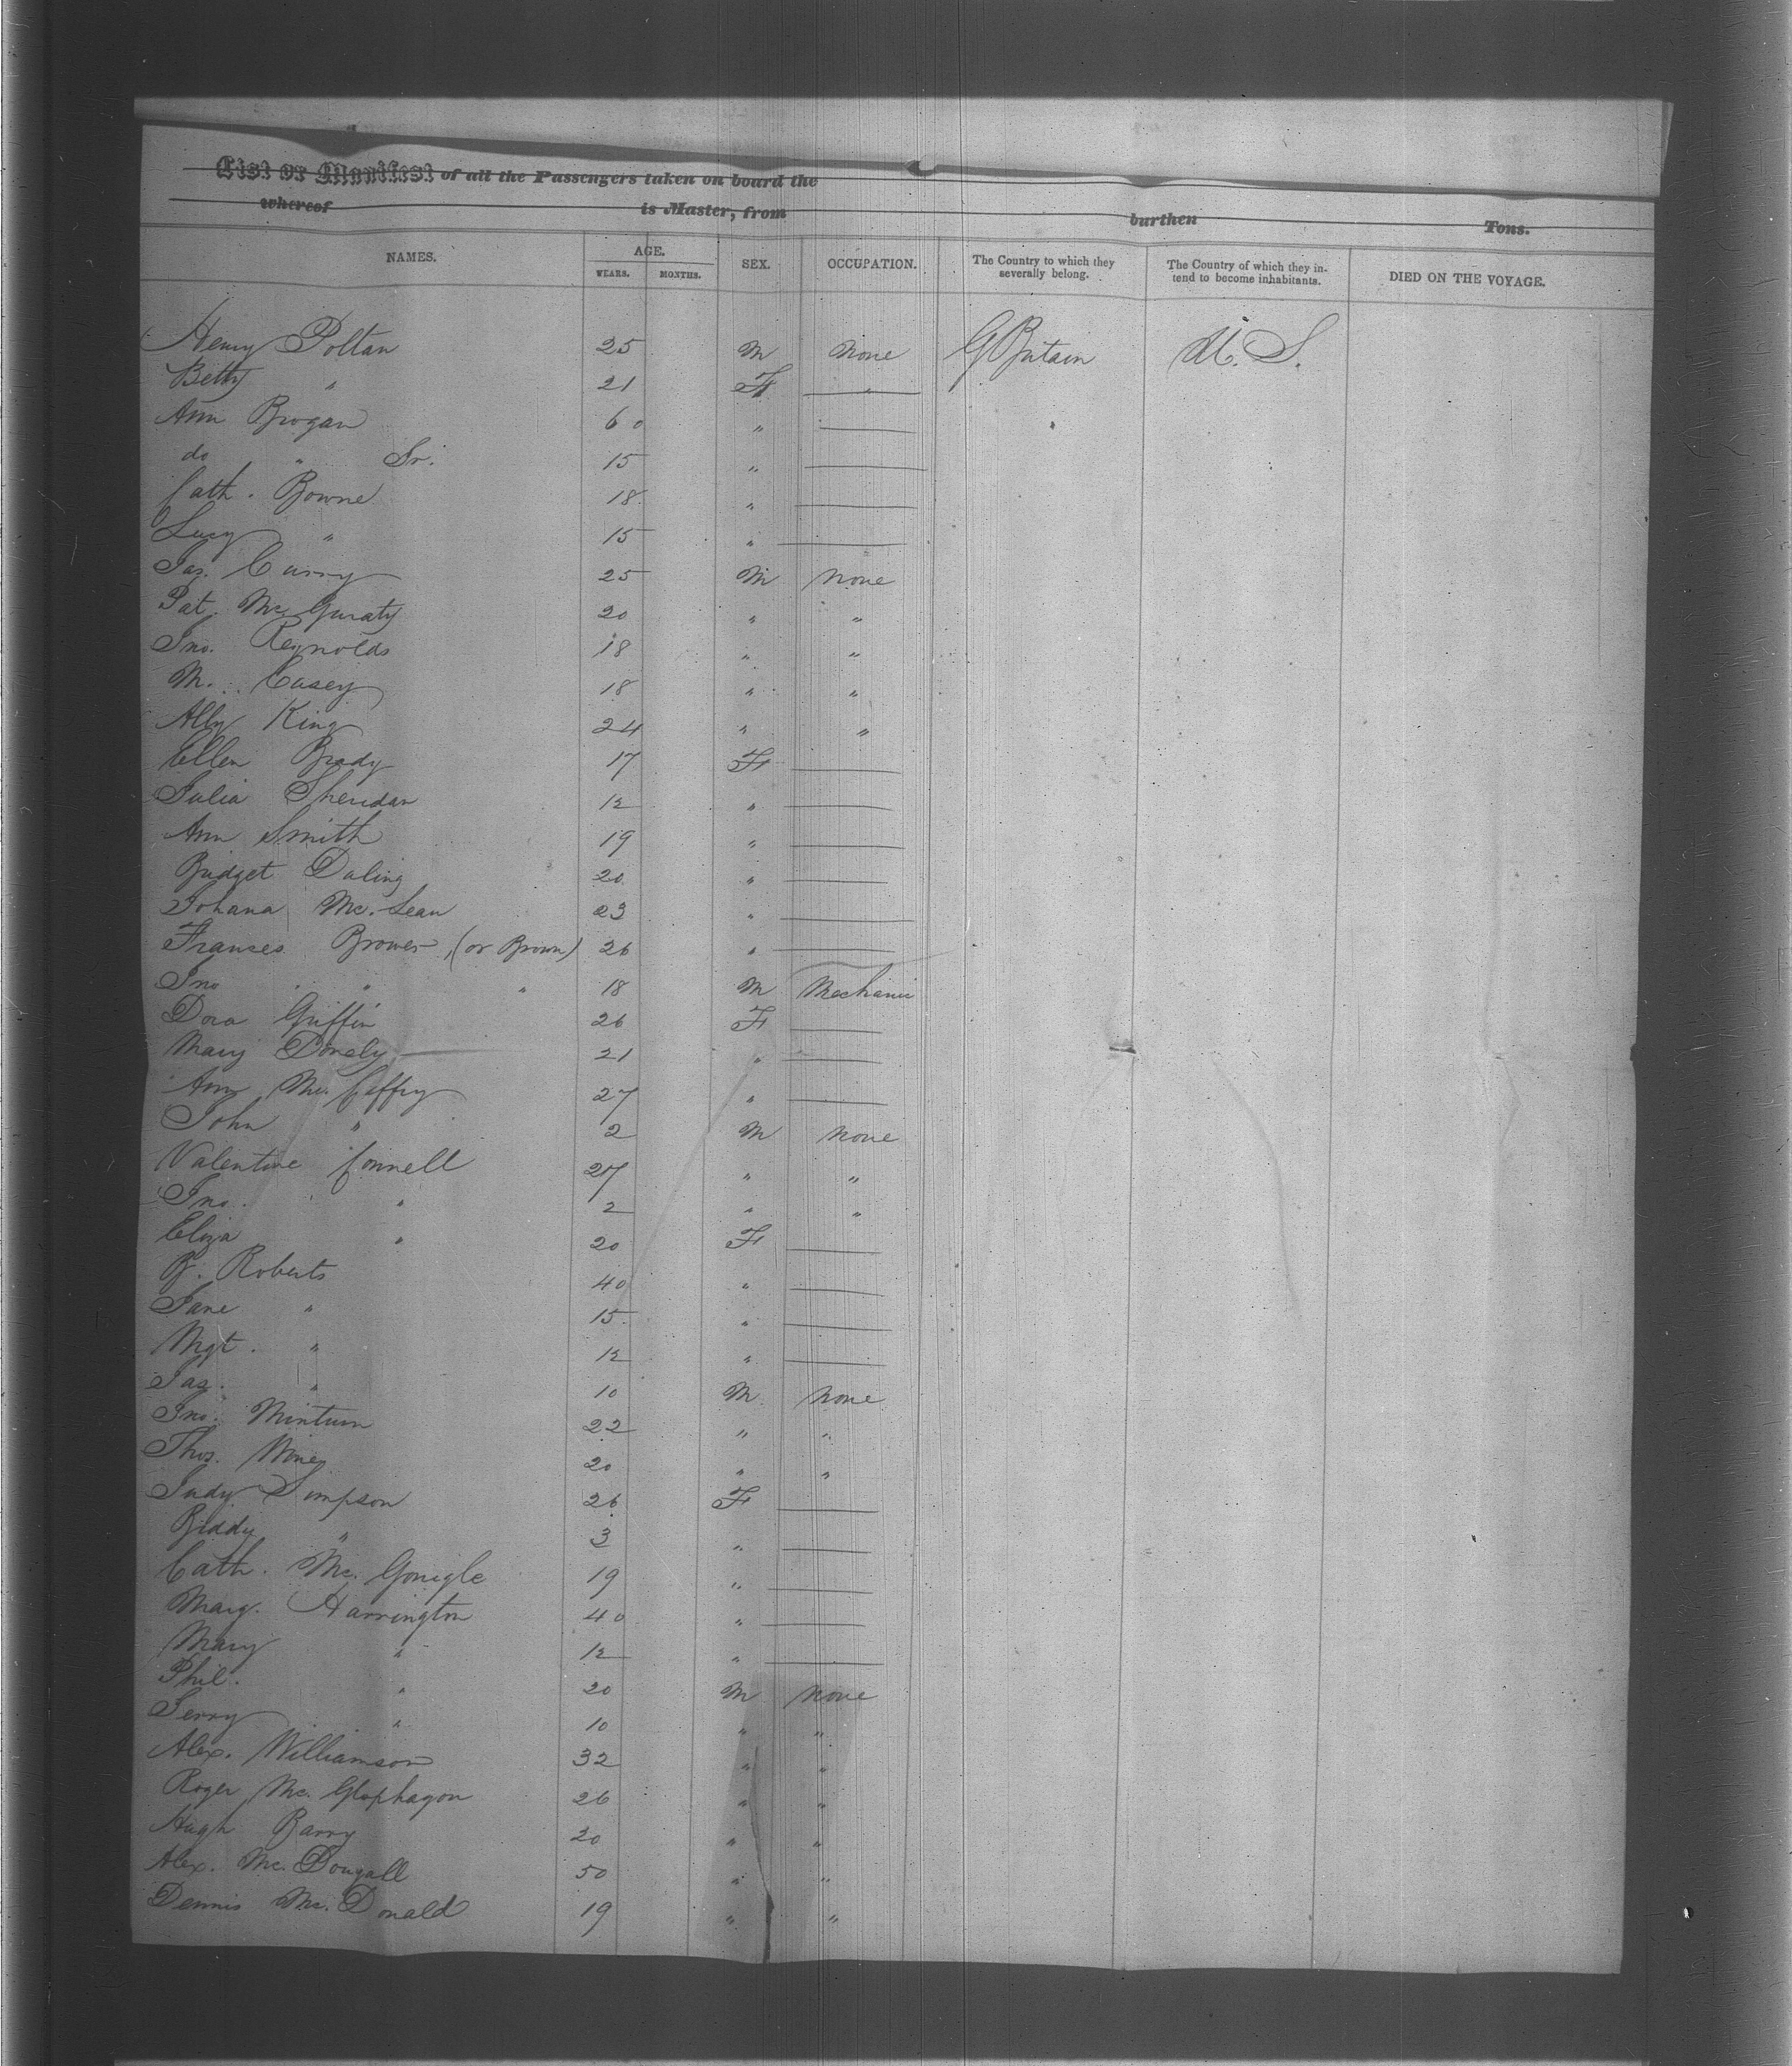 List or Manifest of all the Passengers taken on board the
whereof is Master, from burthen Tons.
NAMES. AGE. SEX. OCCUPATION. The Country to which they severally belong. The Country of which they intend to become inhabitants. DIED ON THE VOYAGE.
YEARS. MONTHS.
Henry Poltan 25 M None G Britain U. S.
Betty " 21 F "
Ann Brogan 60 "
do " Sr. 15 "
Cath. Bowne 18 "
Lucy " 15 "
Jas. Curry 25 M None
Pat. Mc. Guraty 20 " "
Jno. Reynolds 18 " "
M. Casey 18 " "
Ally King 24 " "
Ellen Brady 17 F
Julia Sheridan 12 "
Ann Smith 19 "
Bridget Daling 20 "
Johana Mc. Lean 23 "
Frances Brower, (or Brown) 26 "
Jno " " " 18 M Mechanic
Dora Griffin 26 F
Mary Donely 21 "
Ann Mc. Caffry 27 "
John " 2 M None
Valentine Connell 27 " "
Jno. " 2 " "
Eliza " 20 F
B. Roberts 40 "
Jane " 15 "
Mgt. " 12 "
Jas. " 10 M None
Jno. Minturn 22 " "
Thos. 20 " "
Judy Simpson 26 F
Biddy " 3 "
Cath. Mc. Gonigle 19 "
Marg. Harrington 40 "
Mary " 12 "
Phil. " 20 M None
Jerry " 10 " "
Alex. Williamson 32 " "
Roger Mc. Glaphagon 26 " "
Hugh Barry 20 " "
Alex. Mc. Dougall 50 " "
Dennis Mc. Donald 19 " "